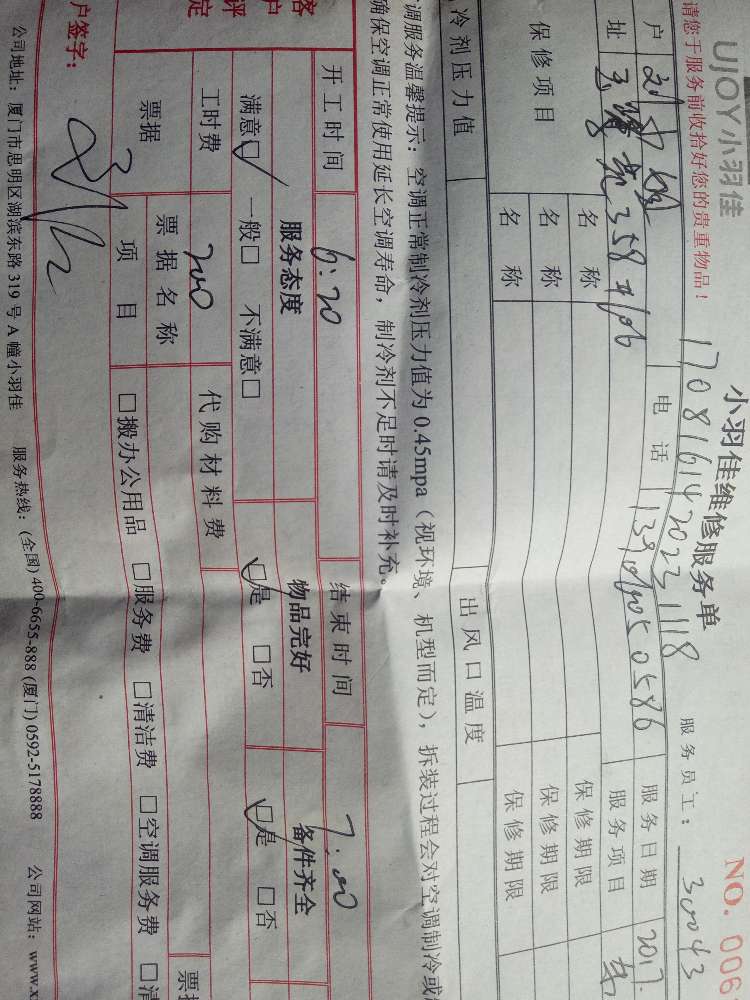 UJOY小羽佳
小羽佳维修服务单
NO. 006
请您于服务前收拾好您的贵重物品！
1708161420231118
服务员工：30043
户
电话
服务日期 2017.
址 358#106
服务项目
保修项目
名称
保修期限
名称
保修期限
名称
保修期限
冷剂压力值
出风口温度
调服务温馨提示：空调正常制冷剂压力值为0.45mpa（视环境、机型而定），拆装过程会对空调制冷或
确保空调正常使用延长空调寿命，制冷剂不足时请及时补充。
开工时间 6:20 结束时间 7:00
客户评定
服务态度 物品完好 备件齐全
满意☑ 一般□ 不满意□ ☑是 □否 ☑是 □否
工时费 200 代购材料费
票据 票据名称 票
项目 □搬办公用品 □服务费 □清洁费 □空调服务费 □清
户签字：
公司地址：厦门市思明区湖滨东路319号A幢小羽佳 服务热线：(全国) 400-6655-888 (厦门) 0592-5178888 公司网站：www.x